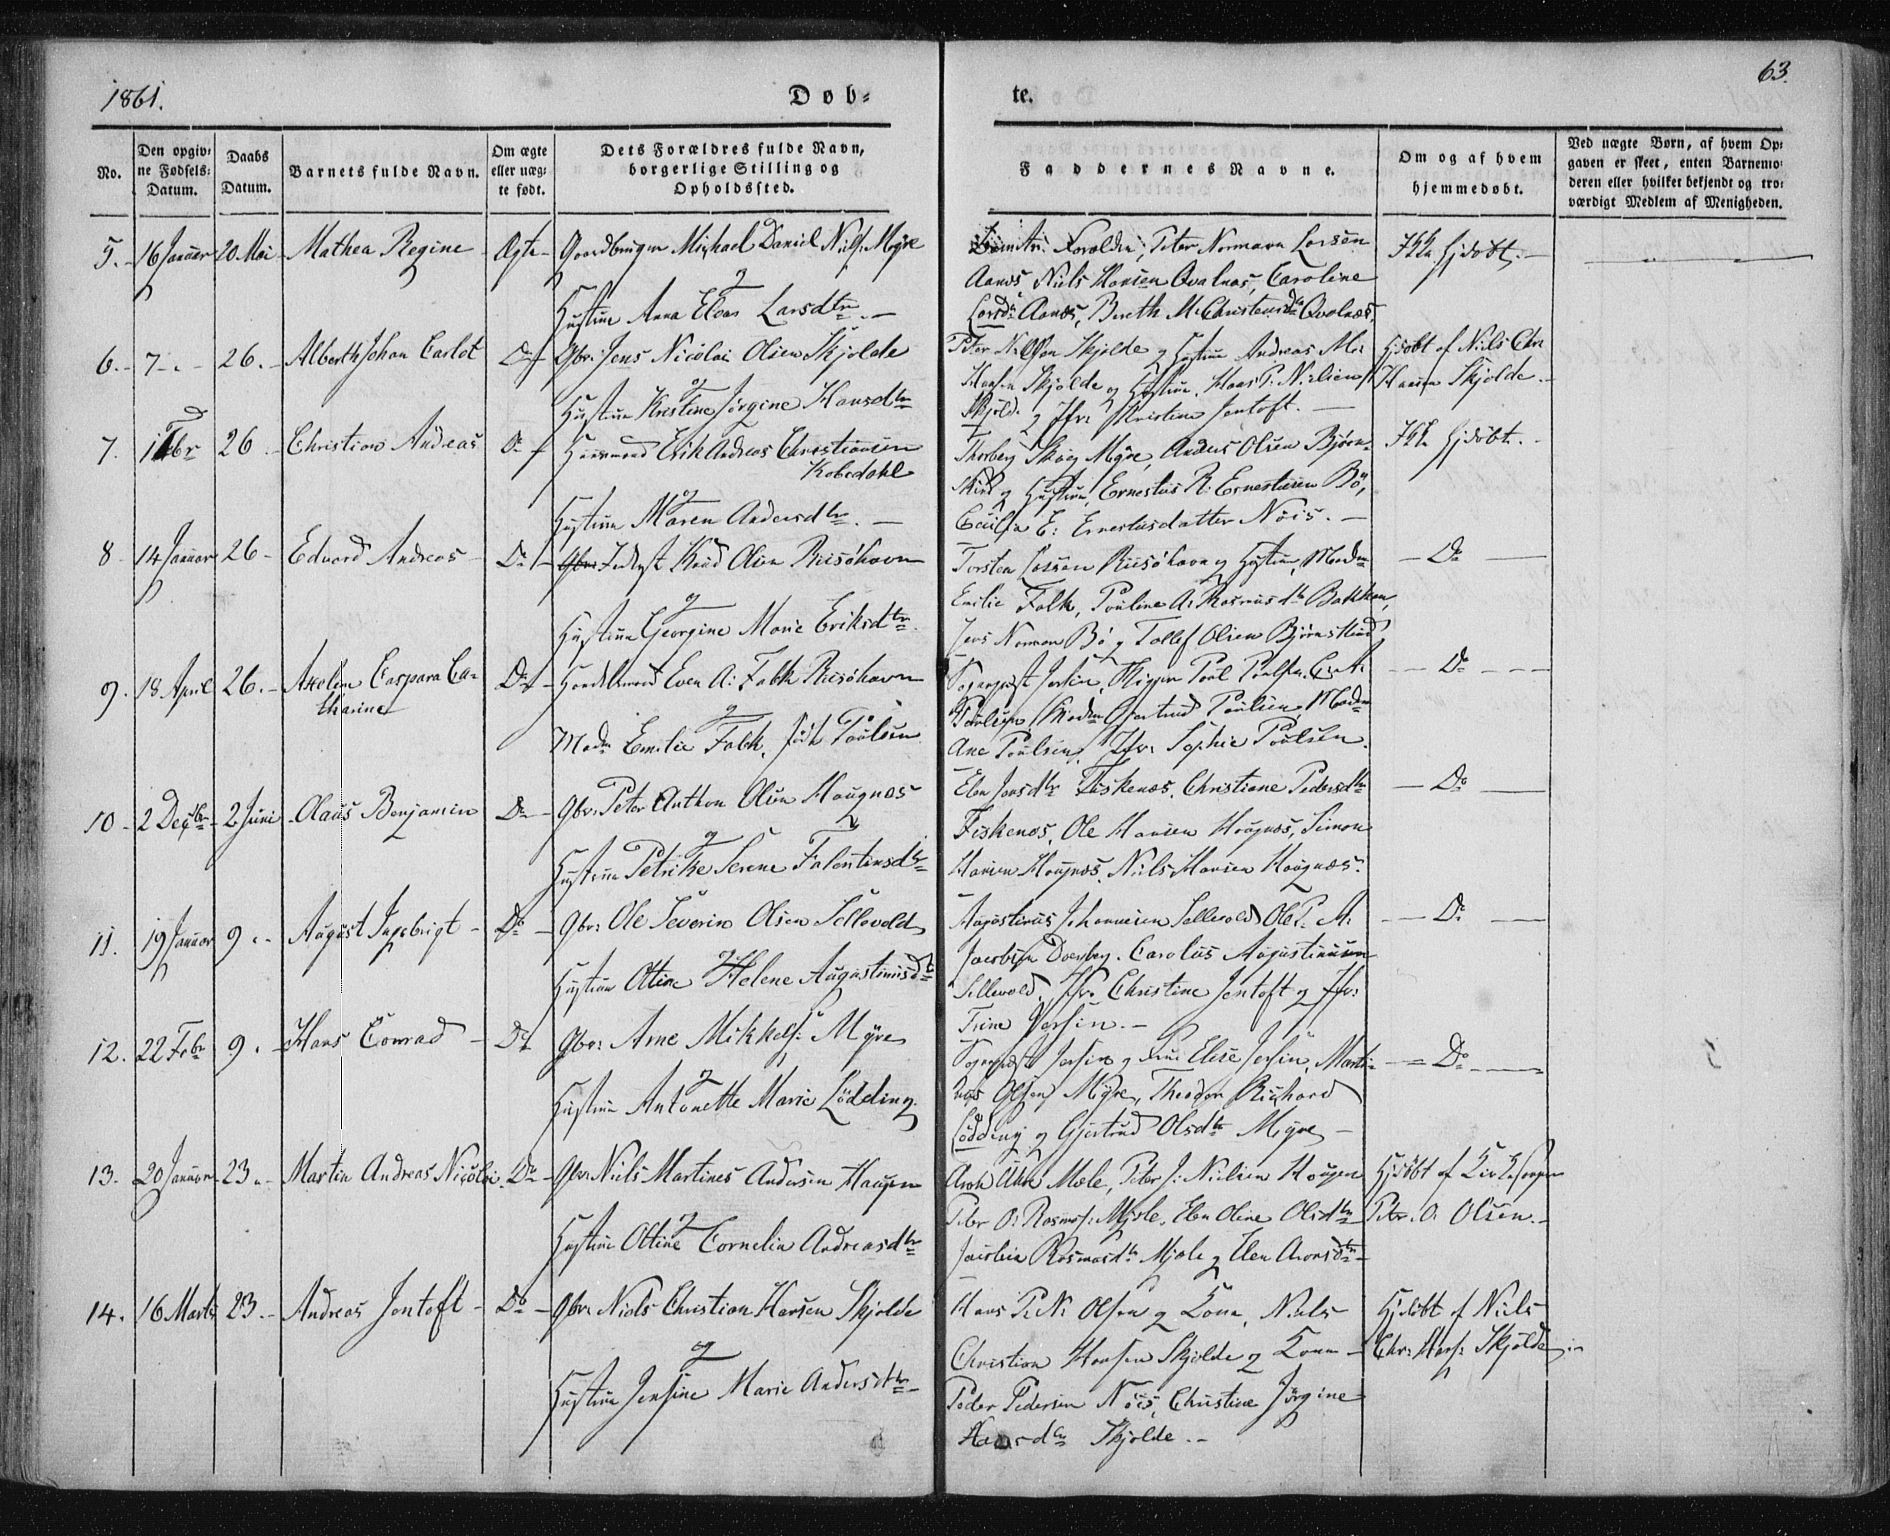 1861.
Døb-
te.
63.
No.
Den opgiv-
ne Fødsels-
Datum.
Daabs
Datum.
Barnets fulde Navn.
Om ægte
eller uæg-
te født.
Dets Forældres fulde Navn,
borgerlige Stilling og
Opholdssted.
Faddernes Navne.
Om og af hvem
hjemmedøbt.
Ved uægte Børn, af hvem Op-
gaven er skeet, enten Barnemo-
deren eller hvilket bekjendt og tro-
værdigt Medlem af Menigheden.
5. 16 Januar 20 Mai Mathea Regine Ægte Gaardbruger Michael Daniel Niels: Myre
og
Hustrue Anna Elena Larsdtr
Forældre, Peter Normann Larsen
Aanes Niels Hansen Qvalnæs, Caroline
Larsdr Aanæs, Bereth M. Christensdr Qvalnæs.
Ikke hjdøbt.
6. 7 26. Alberth Johan Carlot Do Gbr: Jens Nicolai Olsen Skjolde
og
Hustrue Kristine Jørgine Hansdtr
Peter Nielsen Skjolde og Hustrue Andreas M:
Hansen Skjolde og Hustrue, Hans P. Nielsen
Skjolde og Jfr: Christine Jentoft.
Hjdøbt af Niels Chr
Hansen Skjolde.
7. Febr 26 Christian Andreas Do Huusmand Erik Andreas Christiansen
Kobedahl
og
Hustrue Maren Andersdtr.
Thorberg Skog Myre, Anders Olsen Bjørn-
skind og Hustrue, Ernestus R. Ernestusen Bø,
Cecilia E: Ernestusdatter Nøis.
Ikke hjdøbt.
8 14 Januar 26 Edvard Andreas Do Inderst Knud Olsen Risøhavn
og
Hustrue Georgine Marie Eriksdtr.
Torsten Larsen Risøhavn og Hustrue, Madm
Emilie Falk, Pauline A: Rasmusdtr Bakken,
Jens Norman Bø og Tollef Olsen Bjørnskind
Do
9. 18 April 26. Axeline Caspara Ca-
tharine
Do Handelsmand Even A: Falk Risøhavn
og
Madm Emilie Falk, født Poulsen
Sogneprest Jersin, Skipper Poul Poulsen,
Poulsen, Madm Gjertrud Poulsen, Madm
Ane Poulsen, Jfr: Sophie Poulsen.
Do
10 2 Decbr 2 Juni Olaus Benjamin Do Gbr: Peter Anthon Olsen Haugnæs
og
Hustrue Petrike Serene Falentinsdtr
Elen Jensdtr Fiskenæs, Christiane Pedersdtr
Fiskenæs, Ole Hansen Haugnæs, Simon
Hansen Haugnæs, Niels Hansen Haugnæs.
Do
11. 19 Januar 9. August Ingebrigt Do Gbr: Ole Severin Olsen Sellevold
og
Hustrue Otine Helene Augustinusdtr
Augustinus Johannesen Sellevold, Ole P. A:
Jacobsen Doesberg. Carolus Augustinusen
Sellevold, Jfr. Christine Jentoft og Jfr:
Trine Jersin.
Do
12. 22 Febr 9. Hans Conrad Do Gbr: Arne Mikkels: Myre
og
Hustrue Antonette Marie Lødding.
Sogneprest Jersin og Frue Elise Jersin, Marti-
nus Olsen Myre, Theodor Richard
Lødding og Gjertrud Olsdtr Myre
Do
13. 20 Januar 23. Martin Andreas Nicolai. Do Gbr: Niels Martines Andersen Haugen
og
Hustrue Ottine Cornelia Andreasdtr
Mæle, Peter J: Nielsen Haugen
Peter O: Rasmus: Mjæle, Elen Oline Olsdtr
Jacobia Rasmusdtr Mjæle og Elen Aronsdtr
Hjdøbt af Kirkesanger
Peter O: Olsen.
14. 16 Marts 23. Andreas Jentoft Do Gbr: Niels Christian Hansen Skjolde
og
Hustrue Jensine Marie Andersdtr
Hans P. N: Olsen og Kone, Niels
Christian Hansen Skjolde og Kone
Peder Pedersen Nøis, Christine Jørgine
Hansdtr Skjolde.
Hjdøbt af Niels
Chr: Hans: Skjolde.